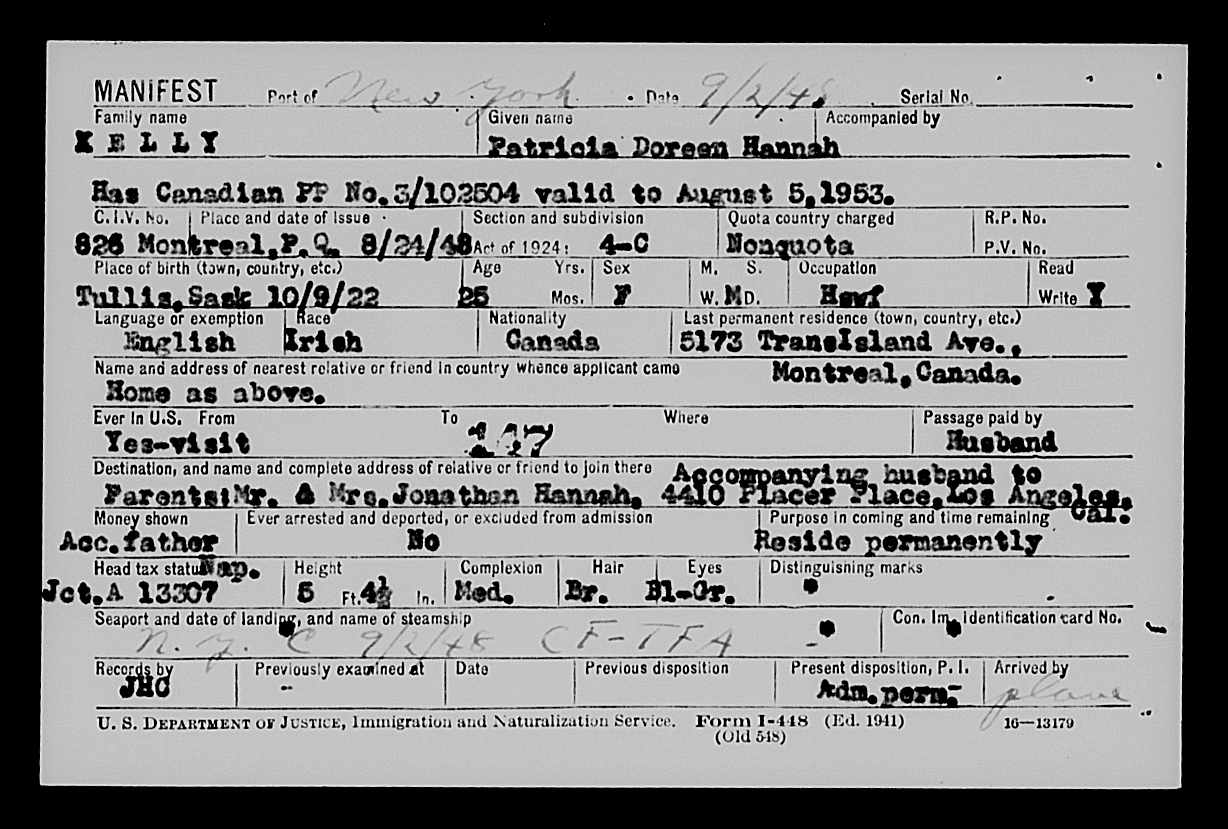 MANIFEST Port of New York Date 9/2/48 Serial No.
Family name Given name Accompanied by
K E L L Y Patricia Doreen Hannah
Has Canadian PP No.3/102504 valid to August 5,1953.
C.I.V. No. Place and date of issue Section and subdivision Quota country charged R.P. No.
826 Montreal,P.Q. 8/24/48 Act of 1924: 4-C Nonquota P.V. No.
Place of birth (town, country, etc.) Age Yrs. Sex M. S. Occupation Read
Tullis,Sask 10/9/22 25 Mos. F W. M D. Hswf Write Y
Language or exemption Race Nationality Last permanent residence (town, country, etc.)
English Irish Canada 5173 TransIsland Ave.,
Name and address of nearest relative or friend in country whence applicant came Montreal,Canada.
Home as above.
Ever in U.S. From To Where Passage paid by
Yes-visit 147 Husband
Destination, and name and complete address of relative or friend to join there Accompanying husband to
Parents:Mr. & Mrs.Jonathan Hannah, 4410 Placer Place,Los Angeles,
Money shown Ever arrested and deported, or excluded from admission Purpose in coming and time remaining Cal.
Acc.father No Reside permanently
Head tax status Nap. Height Complexion Hair Eyes Distinguishing marks
Jct.A 13307 5 Ft. 4½ In. Med. Br. Bl-Gr.
Seaport and date of landing, and name of steamship Con. Im. Identification card No.
N. Y. C 9/2/48 CF-TFA -
Records by Previously examined at Date Previous disposition Present disposition, P. I. Arrived by
JHC -- Adm.perm- plane
U. S. DEPARTMENT OF JUSTICE, Immigration and Naturalization Service. Form I-448 (Ed. 1941) 16—13179
(Old 548)